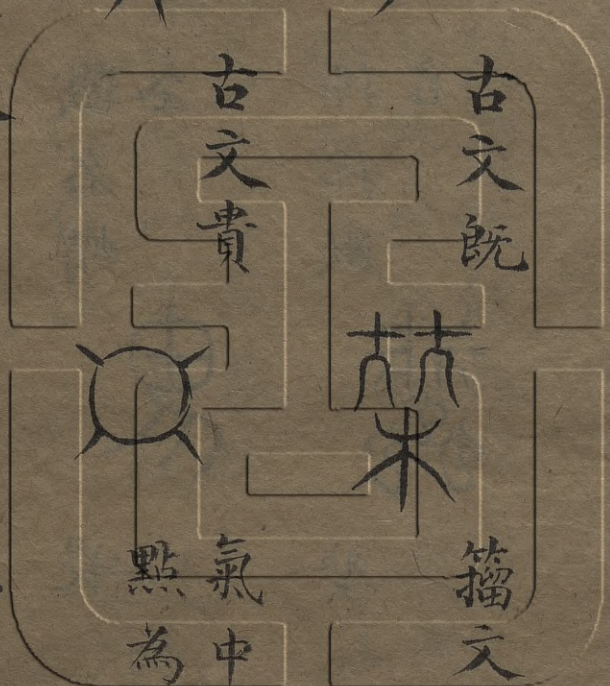 古文旣
籀文
古文貴
氣中
點為